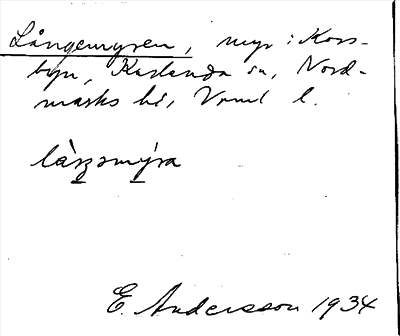 Långemyren, myr i Kors-
byn, Karlanda sn, Nord-
marks hd, Vrml l.
E. Andersson 1934